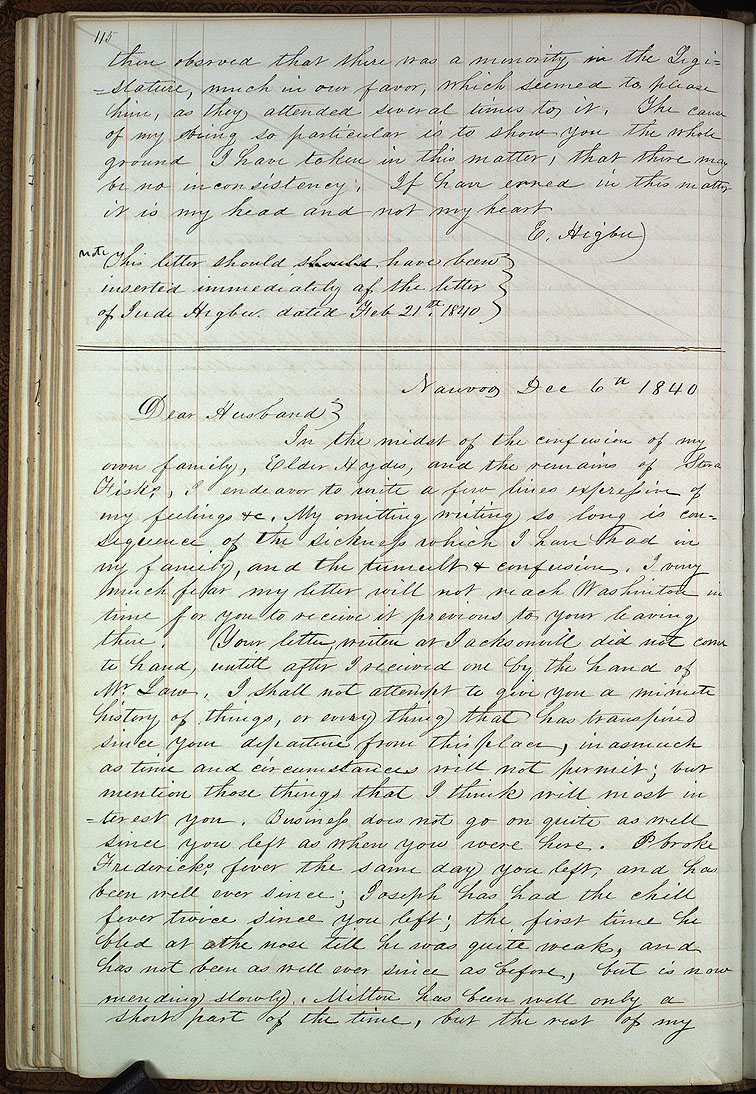 115
then observed that there was a minority in the Legi=
=slature, much in our favor, which seemed to please
him, as they attended several times to it. The cause
of my being so particular is to show you the whole
ground I have taken in this matter, that there may
be no inconsistency. If have erred in this matter
it is my head and not my heart
E. Higbee)
note This letter should should have been
inserted immediately af the letter
of Jude Higbee. dated Feb 21th. 1840
Nauvoo Dec 6th 1840
Dear Husband}
In the midst of the confusion of my
own family, Elder Hydes, and the remains of
Fisks, I endeavor to write a few lines expressive of
my feelings &c. My omitting writing so long is con=
sequence of the sickness which I have had in
my family, and the tumult & confusion. I very
much fear my letter will not reach Washinton in
time for you to receive it previous to your leaving
there. Your letter, writen at Jacksonvill did not come
to hand, untill after I received one by the hand of
Mr Law. I shall not attempt to give you a minute
history of things, or every thing that has transpired
since your departure from this place, inasmuch
as time and circumstances will not permit; but
mention those things that I think will most in
=terest you. Business does not go on quite as well
since you left as when you were here. I broke
Fredericks fever the same day you left, and has
been well ever since; Joseph has had the chill
fever twice since you left; the first time he
bled at the nose till he was quite weak, and
has not been as well ever since as before, but is now
mending slowly. Milton has been well only a
short part of the time, but the rest of my